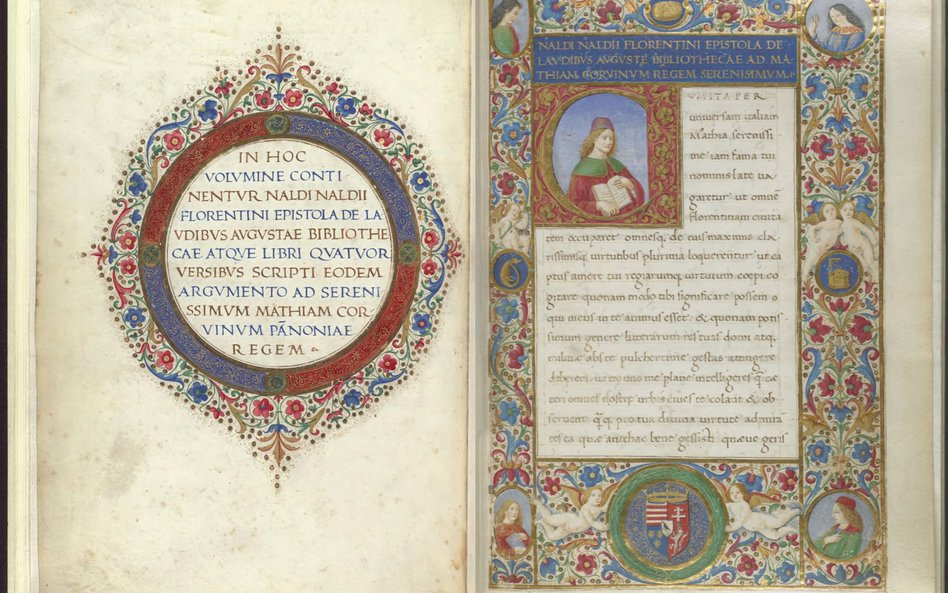 IN HOC
VOLVMINE CONTI
NENTVR NALDI NALDII
FLORENTINI EPISTOLA DE LA
VDIBVS AVGVSTAE BIBLIOTHE
CAE ATQVE LIBRI QVATVOR
VERSIBVS SCRIPTI EODEM
ARGVMENTO AD SERENI
SSIMVM MATHIAM COR
VINVM PÃNONIAE
REGEM
NALDI NALDII FLORENTINI EPISTOLA DE
LAVDIBVS AVGVSTE BIBLIOTHECAE AD MA
THIAM CORVINVM REGEM SERENISSIMVM.
VM ITA PER
universam italiam
Mathia serenissi
me iam fama tui
nominis late va
garetur ut omnē
florentinam civita
tem occuparet omnesq; de tuis maximis cla
rissimisq; virtutibus plurima loquerentur ut ca
ptus amore tui regiarumq; virtutum coepi co
gitare quonam modo tibi significare possem
qui meus in te animus esset & quonam potis
simum genere litterarum res tuas domi atq;
militiae abs te pulcherrime gestas attingere
deberem ut ex iis me plane intelligeres
omnes nostre urbis cives te colant & ob
servent pro tua divina virtute admira
tes ea quae antehac bene gessisti quaeve geris